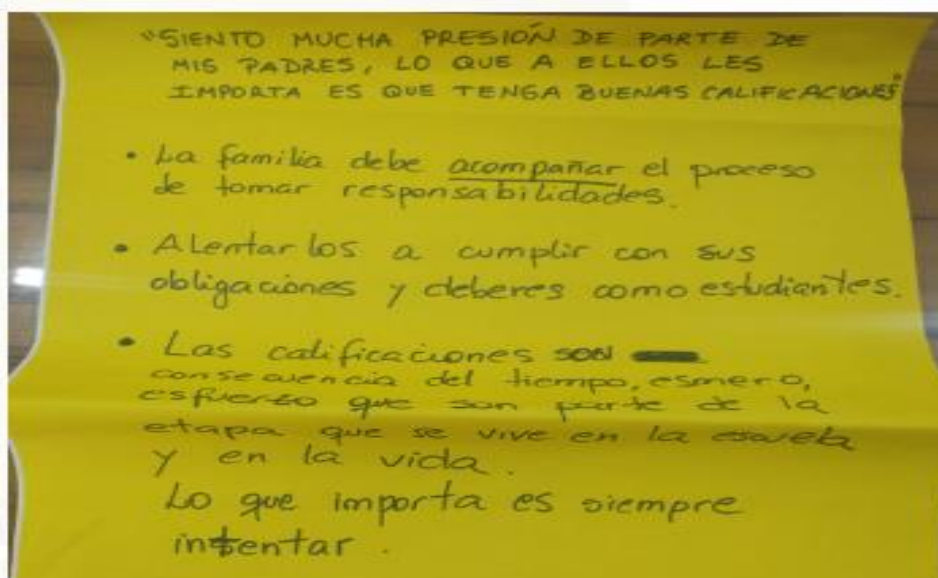 "SIENTO MUCHA PRESIÓN DE PARTE DE
MIS PADRES, LO QUE A ELLOS LES
IMPORTA ES QUE TENGA BUENAS CALIFICACIONES"
• La familia debe acompañar el proceso
de tomar responsabilidades.
• Alentarlos a cumplir con sus
obligaciones y deberes como estudiantes.
• Las calificaciones SON
consecuencia del tiempo, esmero,
esfuerzo que son parte de la
etapa que se vive en la escuela
y en la vida.
Lo que importa es siempre
intentar.